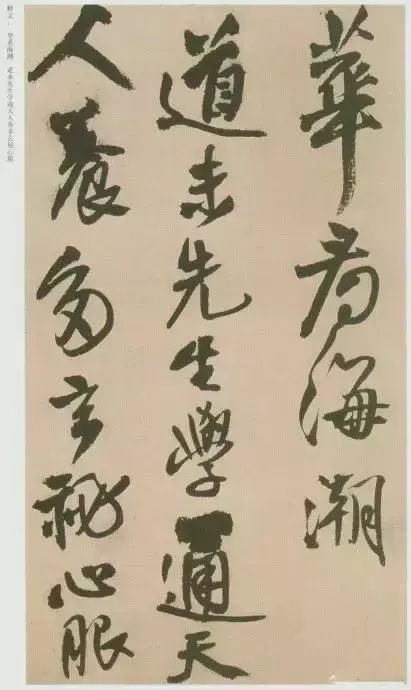 華看海潮
道未先生學通天
人養多玄秘心服
释文： 华看海潮 道未先生学通天人养多玄秘心服